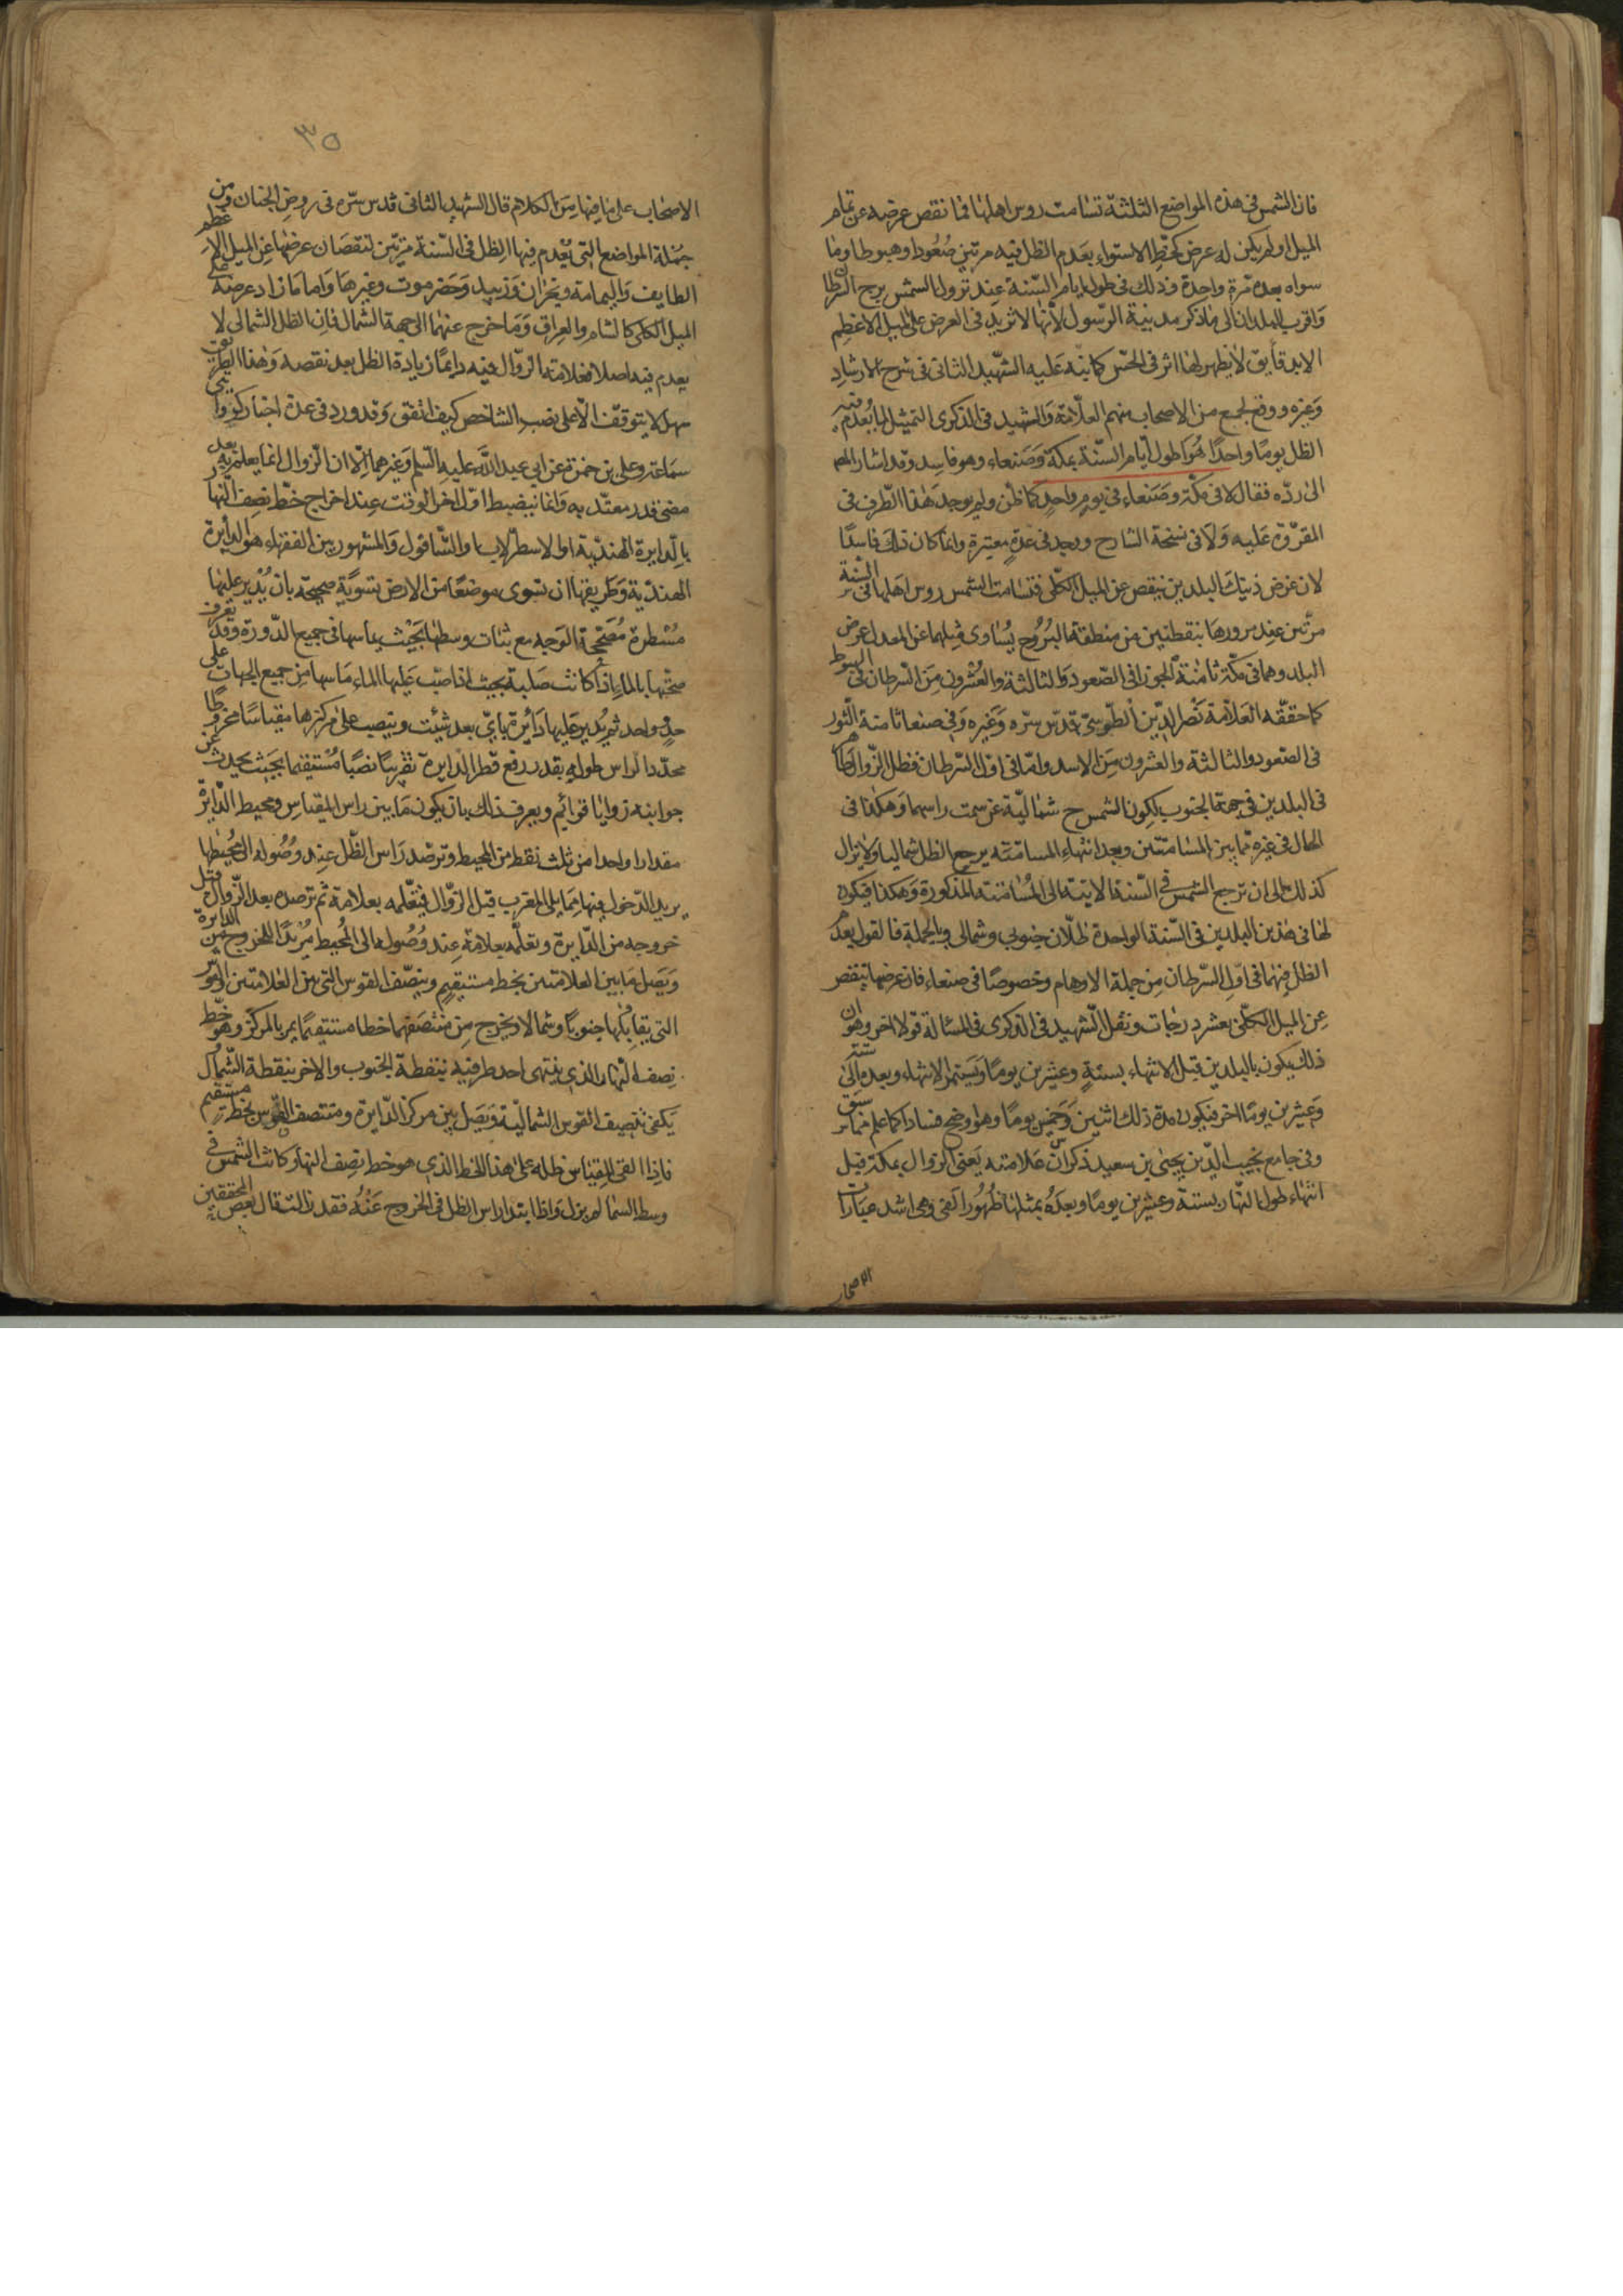 فان الشمس فى هذه المواضع الثلثة تسامت روس اهلها فما نقص عرضه عن تمام
الميل او لم يكن له عرض كخط الاستواء يعدم الظل فيه مرتين صعودا وهبوطا وما
سواه يعدم مرة واحدة وذلك فى طول ايام السنة عند نزول الشمس برج السرطان
واقرب البلدان الى ما ذكر مدينة الرسول لانها لا تزيد فى العرض على الميل الاعظم
الا بدقايق لا يظهر لها اثر فى الحس كما نبه عليه الشهيد الثانى فى شرح الارشاد
وغيره ووقع لجمع من الاصحاب منهم العلامة والشهيد فى الذكرى التمثيل لما يعدم فيه
الظل يوما واحدا هو اطول ايام السنة بمكة وصنعاء وهو فاسد وقد اشار المصـ
الى رده فقال لا فى مكة وصنعاء فى يوم واحد كما ظن ولم يوجد هذا الطرف فى
المقروة عليه ولا فى نسخة الشارح ووجد فى عدة معتبرة وانما كان ذلك فاسدا
لان عرض ذينك البلدين ينقص عن الميل الكلى فتسامت الشمس روس اهلها فى السنة
مرتين عند مرورها بنقطتين من منطقة البروج يساوى ميلهما عن المعدل عرض
البلد وهما فى مكة ثامنة الجوزا فى الصعود والثالثة والعشرون من السرطان فى الهبوط
كما حققه العلامة نصر الدين الطوسى قدس سره وغيره وفى صنعا ثامنة الثور
فى الصعود والثالثة والعشرون من الاسد واما فى اول السرطان فظل الزوال
فى البلدين فى جهة الجنوب لكون الشمس ح شمالية عن سمت راسهما وهكذا فى
الحال فى غيره مما بين المسامتتين وبعد انتهاء المسامتة يرجع الظل شماليا ولا يزال
كذلك الى ان ترجع الشمس فى السنة الاتية الى المسامتة المذكورة وهكذا فيكون
لها فى هذين البلدين فى السنة الواحدة ظلان جنوبى وشمالى وبالجملة فالقول بعدم
الظل فيهما فى اول السرطان من جملة الاوهام وخصوصا فى صنعاء فان عرضها ينقص
عن الميل الكلى بعشر درجات ونقل الشهيد فى الذكرى فى المسالة قولا اخر وهو ان
ذلك يكون بالبلدين قبل الانتهاء بستة وعشرين يوما ويستمر الى الانتهاء وبعده الى ستة
وعشرين يوما اخر فيكون مدة ذلك اثنين وخمسين يوما وهو اوضح فسادا كما علم مما سبق
وفى جامع نجيب الدين يحيى بن سعيد ذكر ان علامته يعنى الزوال بمكة قبل
انتهاء طول النهار بستة وعشرين يوما وبعده بمثلها ظهور الفئ وهى اشد عبارات
الاصحاب
٣٥
الاصحاب على ما فيها من الكلام قال الشهيد الثانى قدس سره فى روض الجنان ومن
جملة المواضع التى يعدم فيها الظل فى السنة مرتين لنقصان عرضها عن الميل الاعظم
الطايف واليمامة ونجران وزبيد وحضرموت وغيرها واما ما زاد عرضه على
الميل الكلى كالشام والعراق وما خرج عنهما الى جهة الشمال فان الظل الشمالى لا
يعدم فيه اصلا فعلامة الزوال فيه دايما زيادة الظل بعد نقصه وهذا الطريق
سهل لا يتوقف الا على نصب الشاخص كيف اتفق وقد ورد فى عدة اخبار كرواية
سماعة وعلى بن حمزة عن ابى عبد الله عليه السلم وغيرهما الا ان الزوال انما يعلم به بعد
مضى قدر معتد به وانما ينضبط اول الوقت عند اخراج خط نصف النهار
بالدايرة الهندية او الاسطرلاب والشاقول والمشهور بين الفقهاء هو الدايرة
الهندية وطريقها ان تسوى موضعا من الارض تسوية صحيحة بان تدير عليها
مسطرة مصححة الوجه مع ثبات وسطها بحيث يماسها فى جميع الدورة وقد تعرف
صحتها بالماء اذا كانت صلبة بحيث اذا صب عليها الماء ماسها من جميع الجهات على
حد واحد ثم تدير عليها دايرة باى بعد شئت وينصب على مركزها مقياسا مخروطا
محدد الراس طوله بقدر ربع قطر الدايرة تقريبا نصبا مستقيما بحيث يحدث عن
جوانبه زوايا قوائم ويعرف ذلك بان يكون ما بين راس المقياس ومحيط الدايرة
مقدارا واحدا من ثلث نقط من المحيط وترصد راس الظل عند وصوله الى محيطها
يريد الدخول فيها مما يلى المغرب قبل الزوال فتعلمه بعلامة ثم ترصده بعد الزوال قبل
خروجه من الدايرة وتعلمه بعلامة عند وصوله الى المحيط مريدا للخروج من الدايرة
وتصل ما بين العلامتين بخط مستقيم وينصف القوس التى بين العلامتين
التى يقابلها جنوبا وشمالا ويخرج من منتصفهما خطا مستقيما يمر بالمركز وهو خط
نصف النهار الذى ينتهى احد طرفيه بنقطة الجنوب والاخر بنقطة الشمال
يكفى تنصيف القوس الشمالية وتصل بين مركز الدايرة ومنتصف القوس بخط مستقيم
فاذا القى المقياس ظله على هذا الخط الذى هو خط نصف النهار كانت الشمس فى
وسط السما لم يزل واذا ابتدا راس الظل فى الخروج عنه فقد زالت قال بعض المحققين